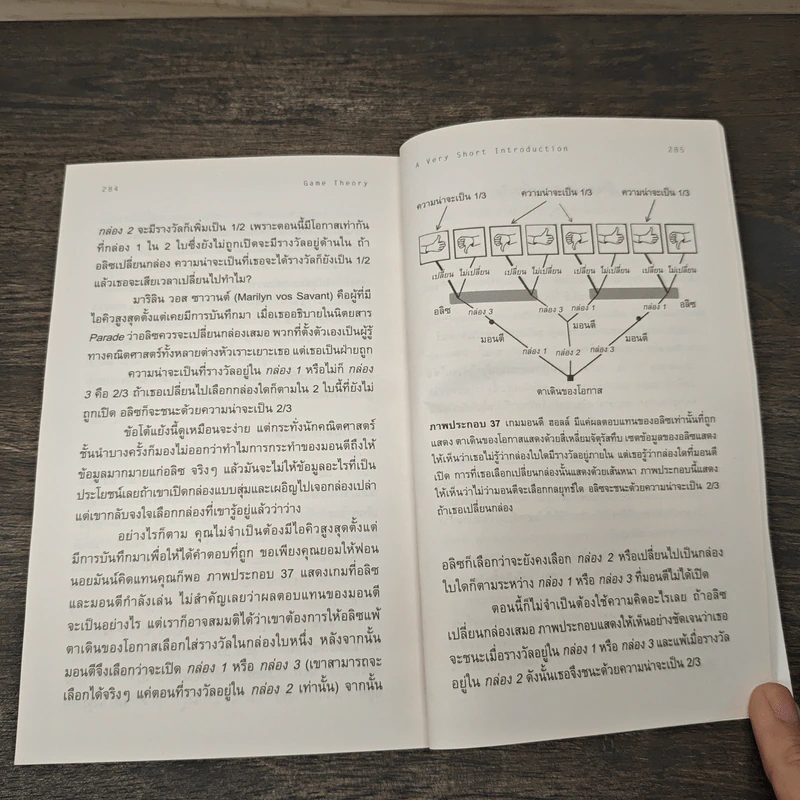 284
Game Theory
กล่อง 2 จะมีรางวัลก็เพิ่มเป็น 1/2 เพราะตอนนี้มีโอกาสเท่ากัน
ที่กล่อง 1 ใน 2 ใบซึ่งยังไม่ถูกเปิดจะมีรางวัลอยู่ด้านใน ถ้า
อลิซเปลี่ยนกล่อง ความน่าจะเป็นที่เธอจะได้รางวัลก็ยังเป็น 1/2
แล้วเธอจะเสียเวลาเปลี่ยนไปทำไม?
มาริลิน วอส ซาวานต์ (Marilyn vos Savant) คือผู้ที่มี
ไอคิวสูงสุดตั้งแต่เคยมีการบันทึกมา เมื่อเธออธิบายในนิตยสาร
Parade ว่าอลิซควรจะเปลี่ยนกล่องเสมอ พวกที่ตั้งตัวเองเป็นผู้รู้
ทางคณิตศาสตร์ทั้งหลายต่างหัวเราะเยาะเธอ แต่เธอเป็นฝ่ายถูก
ความน่าจะเป็นที่รางวัลอยู่ใน กล่อง 1 หรือไม่ก็ กล่อง
3 คือ 2/3 ถ้าเธอเปลี่ยนไปเลือกกล่องใดก็ตามใน 2 ใบนี้ที่ยังไม่
ถูกเปิด อลิซก็จะชนะด้วยความน่าจะเป็น 2/3
ข้อโต้แย้งนี้ดูเหมือนจะง่าย แต่กระทั่งนักคณิตศาสตร์
ชั้นนำบางครั้งก็มองไม่ออกว่าทำไมการกระทำของมอนตีถึงให้
ข้อมูลมากมายแก่อลิซ จริงๆ แล้วมันจะไม่ให้ข้อมูลอะไรที่เป็น
ประโยชน์เลยถ้าเขาเปิดกล่องแบบสุ่มและเผอิญไปเจอกล่องเปล่า
แต่เขากลับจงใจเลือกกล่องที่เขารู้อยู่แล้วว่าว่าง
อย่างไรก็ตาม คุณไม่จำเป็นต้องมีไอคิวสูงสุดตั้งแต่
มีการบันทึกมาเพื่อให้ได้คำตอบที่ถูก ขอเพียงคุณยอมให้ฟอน
นอยมันน์คิดแทนคุณก็พอ ภาพประกอบ 37 แสดงเกมที่อลิซ
และมอนตีกำลังเล่น ไม่สำคัญเลยว่าผลตอบแทนของมอนตี
จะเป็นอย่างไร แต่เราก็อาจสมมติได้ว่าเขาต้องการให้อลิซแพ้
ตาเดินของโอกาสเลือกใส่รางวัลในกล่องใบหนึ่ง หลังจากนั้น
มอนตีจึงเลือกว่าจะเปิด กล่อง 1 หรือ กล่อง 3 (เขาสามารถจะ
เลือกได้จริงๆ แค่ตอนที่รางวัลอยู่ใน กล่อง 2 เท่านั้น) จากนั้น
A Very Short Introduction
285
ความน่าจะเป็น 1/3 ความน่าจะเป็น 1/3 ความน่าจะเป็น 1/3
เปลี่ยน ไม่เปลี่ยน เปลี่ยน ไม่เปลี่ยน เปลี่ยน ไม่เปลี่ยน เปลี่ยน ไม่เปลี่ยน
อลิซ กล่อง 3 กล่อง 3 กล่อง 1 กล่อง 1 อลิซ
มอนตี มอนตี มอนตี
กล่อง 1 กล่อง 2 กล่อง 3
ตาเดินของโอกาส
ภาพประกอบ 37 เกมมอนตี ฮอลล์ มีแค่ผลตอบแทนของอลิซเท่านั้นที่ถูก
แสดง ตาเดินของโอกาสแสดงด้วยสี่เหลี่ยมจัตุรัสทึบ เซตข้อมูลของอลิซแสดง
ให้เห็นว่าเธอไม่รู้ว่ากล่องใบใดมีรางวัลอยู่ภายใน แต่เธอรู้ว่ากล่องใดที่มอนตี
เปิด การที่เธอเลือกเปลี่ยนกล่องนั้นแสดงด้วยเส้นหนา ภาพประกอบนี้แสดง
ให้เห็นว่าไม่ว่ามอนตีจะเลือกกลยุทธ์ใด อลิซจะชนะด้วยความน่าจะเป็น 2/3
ถ้าเธอเปลี่ยนกล่อง
อลิซก็เลือกว่าจะยังคงเลือก กล่อง 2 หรือเปลี่ยนไปเป็นกล่อง
ใบใดก็ตามระหว่าง กล่อง 1 หรือ กล่อง 3 ที่มอนตีไม่ได้เปิด
ตอนนี้ก็ไม่จำเป็นต้องใช้ความคิดอะไรเลย ถ้าอลิซ
เปลี่ยนกล่องเสมอ ภาพประกอบแสดงให้เห็นอย่างชัดเจนว่าเธอ
จะชนะเมื่อรางวัลอยู่ใน กล่อง 1 หรือ กล่อง 3 และแพ้เมื่อรางวัล
อยู่ใน กล่อง 2 ดังนั้นเธอจึงชนะด้วยความน่าจะเป็น 2/3